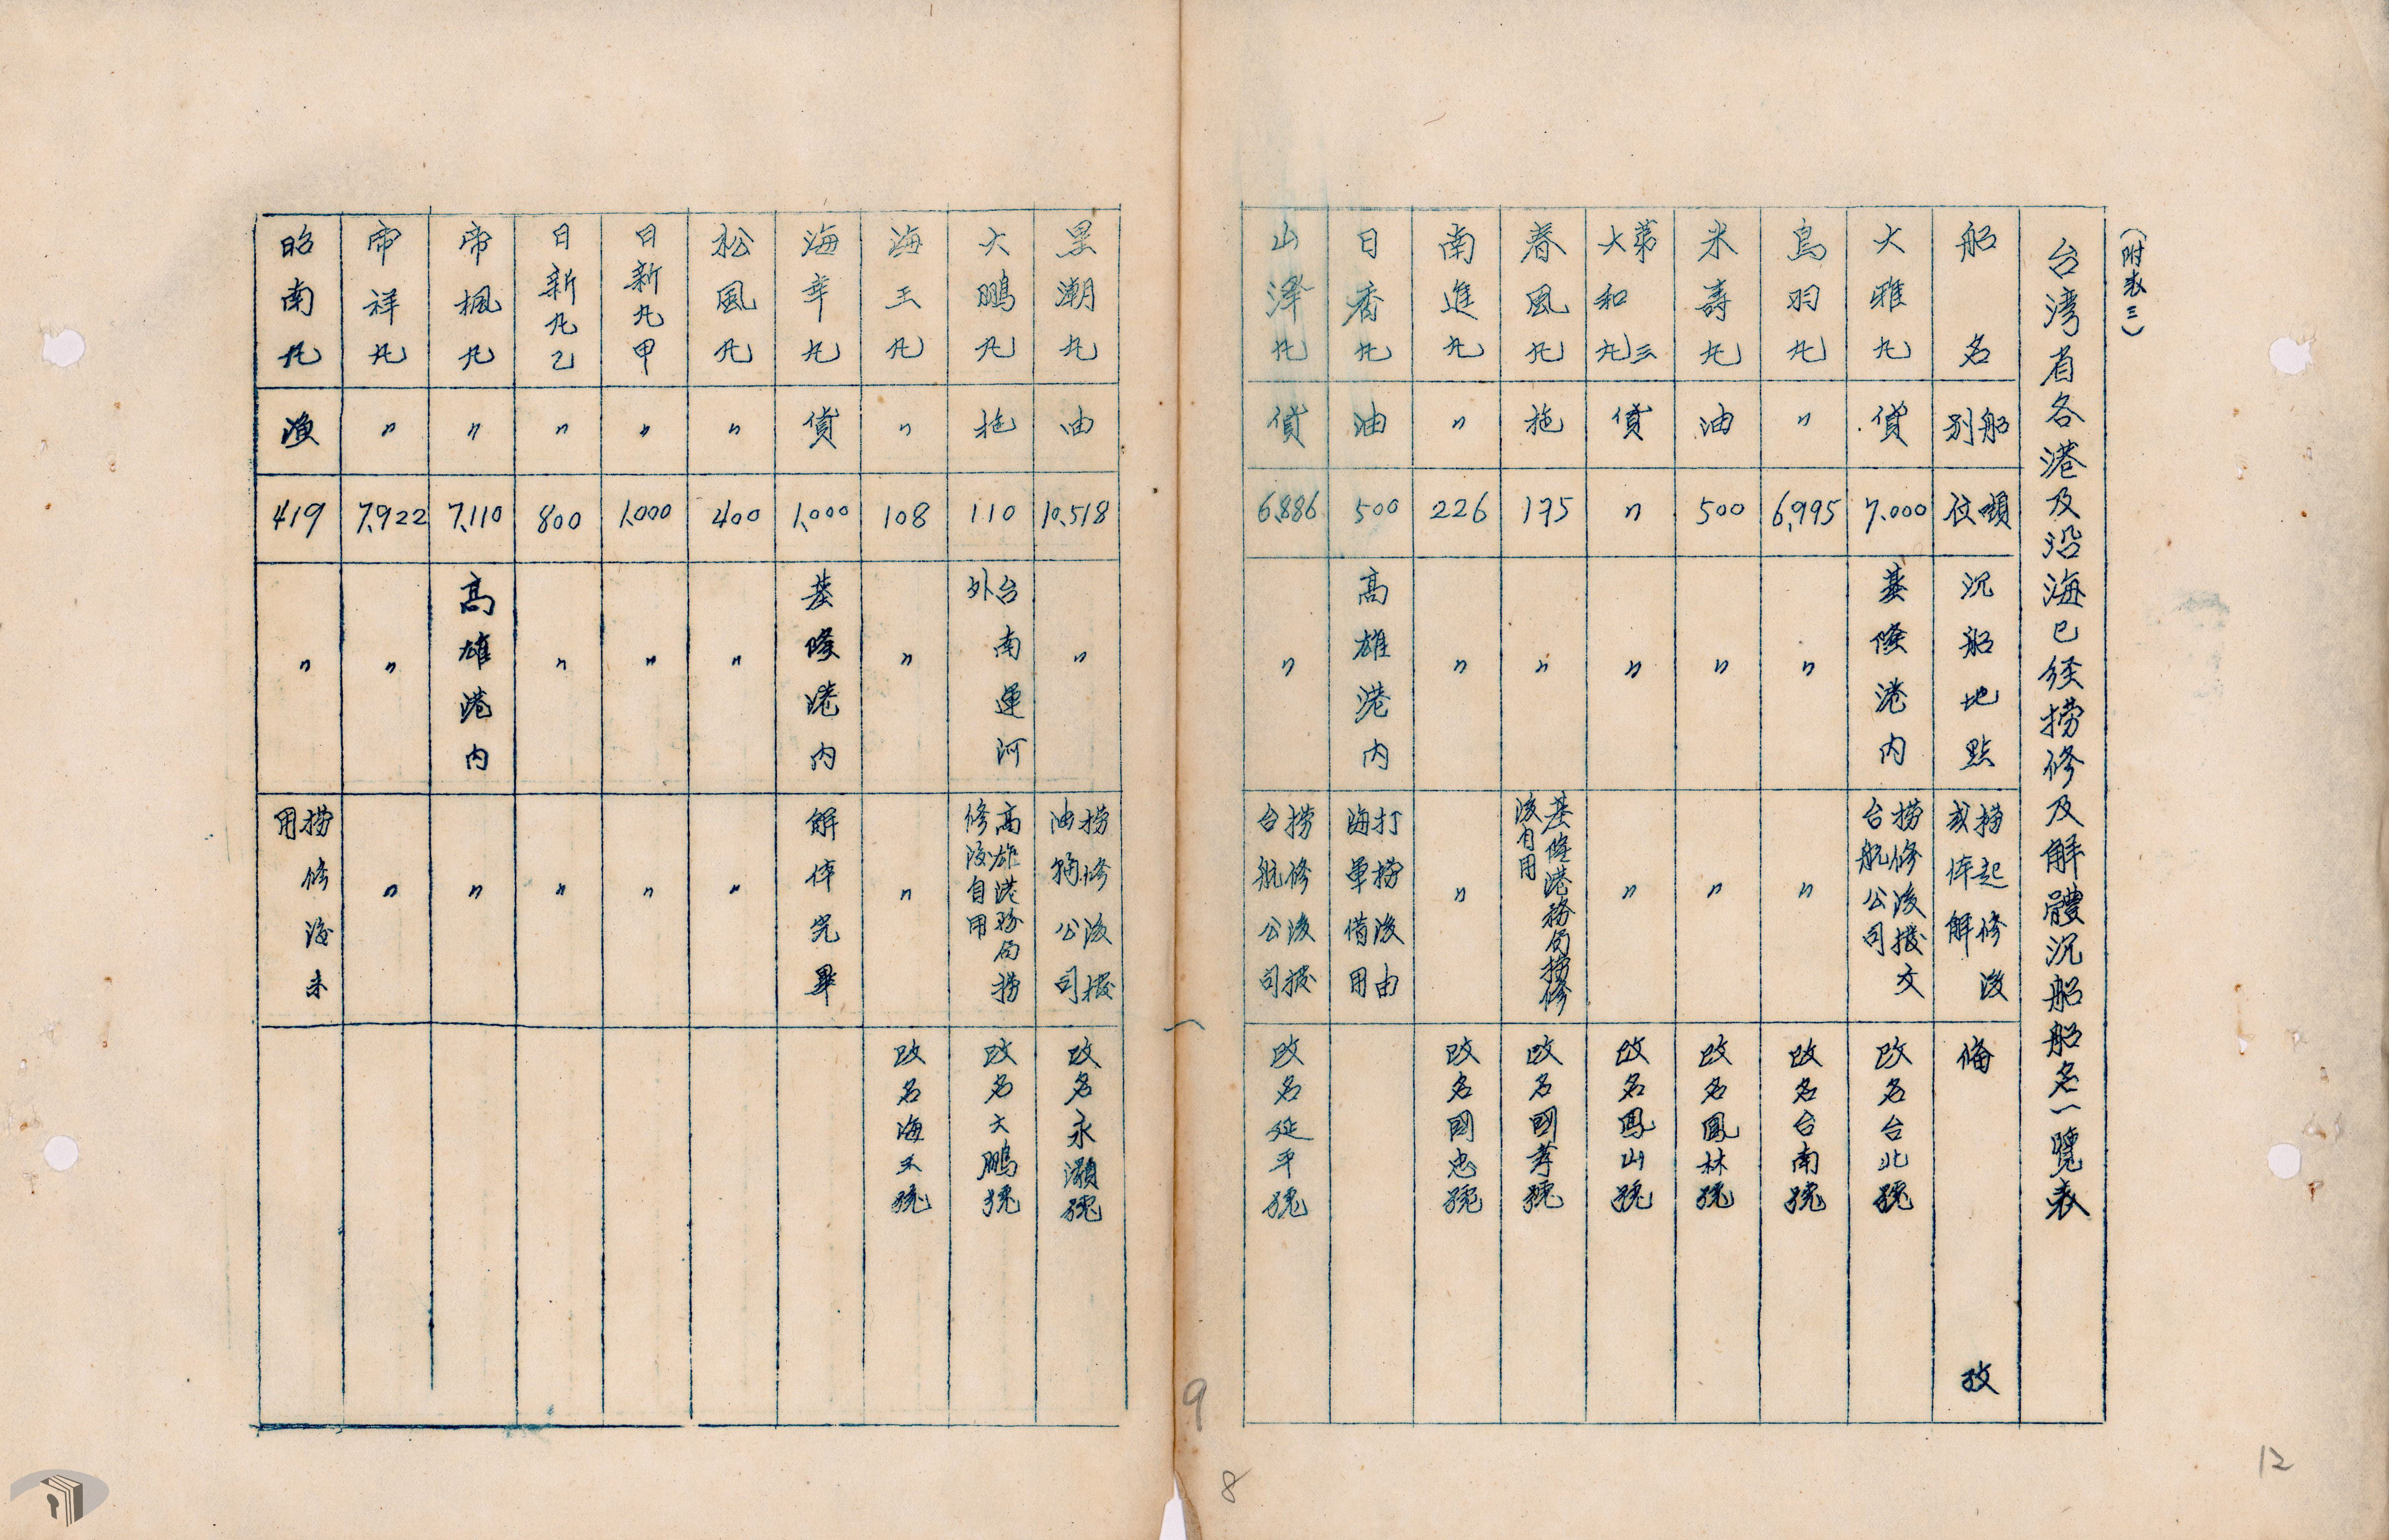 （附表三）
台湾省各港及沿海已经捞修及解體沉船船名一覽表
船名 船別 噸位 沉船地點 捞起修後或解体 俻攷
大雅丸 貨 7,000 基隆港内 捞修後拨交台航公司 改名台北號
鳥羽丸 〃 6,995 〃 〃 改名台南號
米壽丸 油 500 〃 〃 改名鳳林號
第三大和丸 貨 〃 〃 〃 改名鳳山號
春風丸 拖 175 〃 基隆港務局捞修後自用 改名國孝號
南進丸 〃 226 〃 〃 改名國忠號
日香丸 油 500 高雄港内 打捞後由海軍借用
山澤丸 貨 6,886 〃 捞修後拨台航公司 改名延平號
黑潮丸 油 10,518 〃 捞修後拨油輪公司 改名永灝號
大鵬丸 拖 110 台南運河外 高雄港務局捞修後自用 改名大鵬號
海王丸 〃 108 〃 〃 改名海王號
海幸丸 貨 1,000 基隆港内 解体完畢
松風丸 〃 400 〃 〃
日新丸甲 〃 1,000 〃 〃
日新丸乙 〃 800 〃 〃
帝楓丸 〃 7,110 高雄港内 〃
帝祥丸 〃 7,922 〃 〃
昭南丸 漁 419 〃 捞修後未用
9
8
12